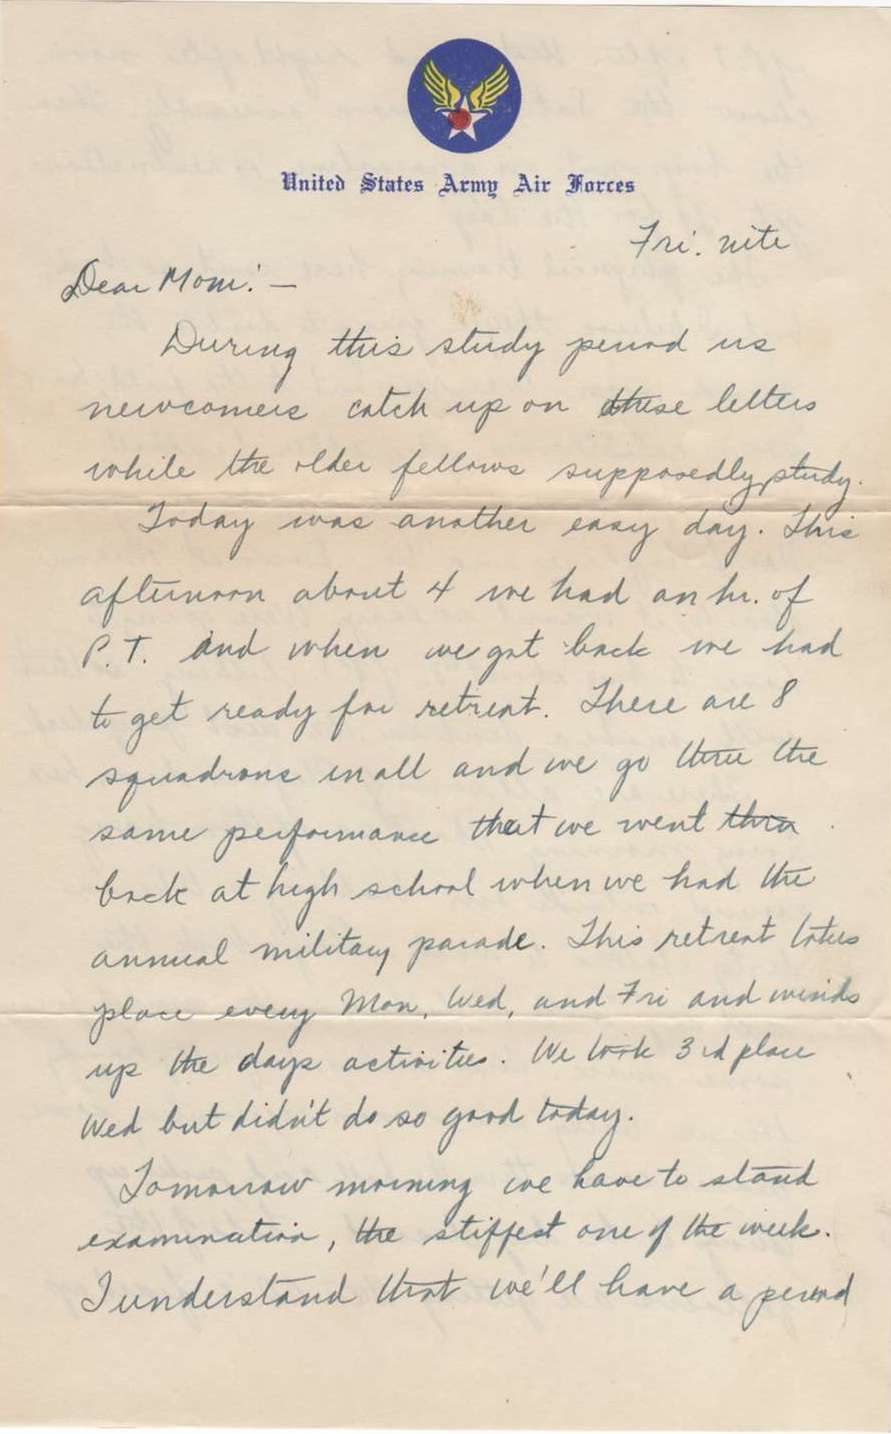 United States Army Air Forces
Fri. nite
Dear Mom: —
During this study period us
newcomers catch up on these letters
while the older fellows supposedly study.
Today was another easy day. This
afternoon about 4 we had an hr. of
P.T. and when we got back we had
to get ready for retreat. There are 8
squadrons in all and we go thru the
same performance that we went thru
back at high school when we had the
annual military parade. This retreat takes
place every Mon, Wed, and Fri and winds
up the days activities. We took 3rd place
Wed but didn't do so good today.
Tomorrow morning we have to stand
examination, the stiffest one of the week.
I understand that we'll have a period